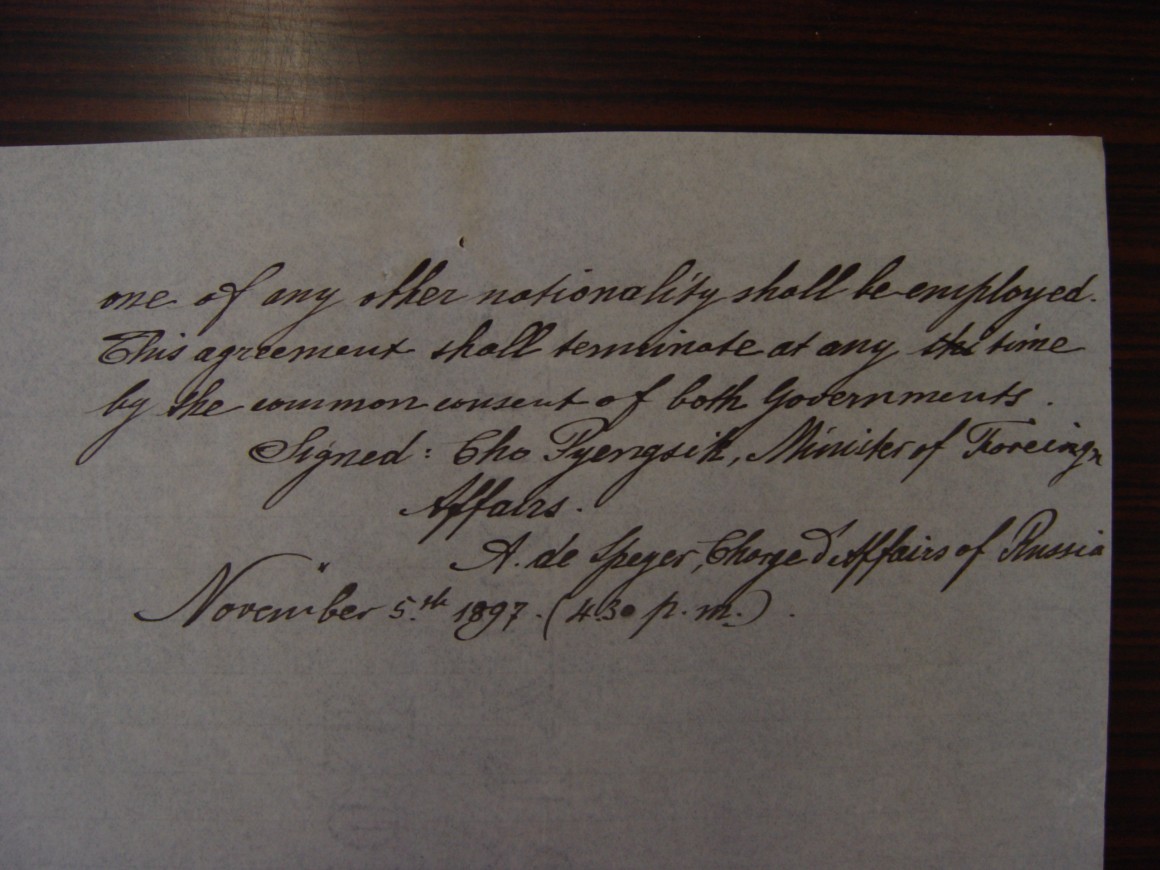 one of any other nationality shall be employed.
This agreement shall terminate at any the time
by the common consent of both Governments.
Signed: Cho Pyengsik, Minister of Foreingn
Affairs.
A. de Speyer, Charge d'Affairs of Russia
November 5th 1897. (4.30 p.m.).